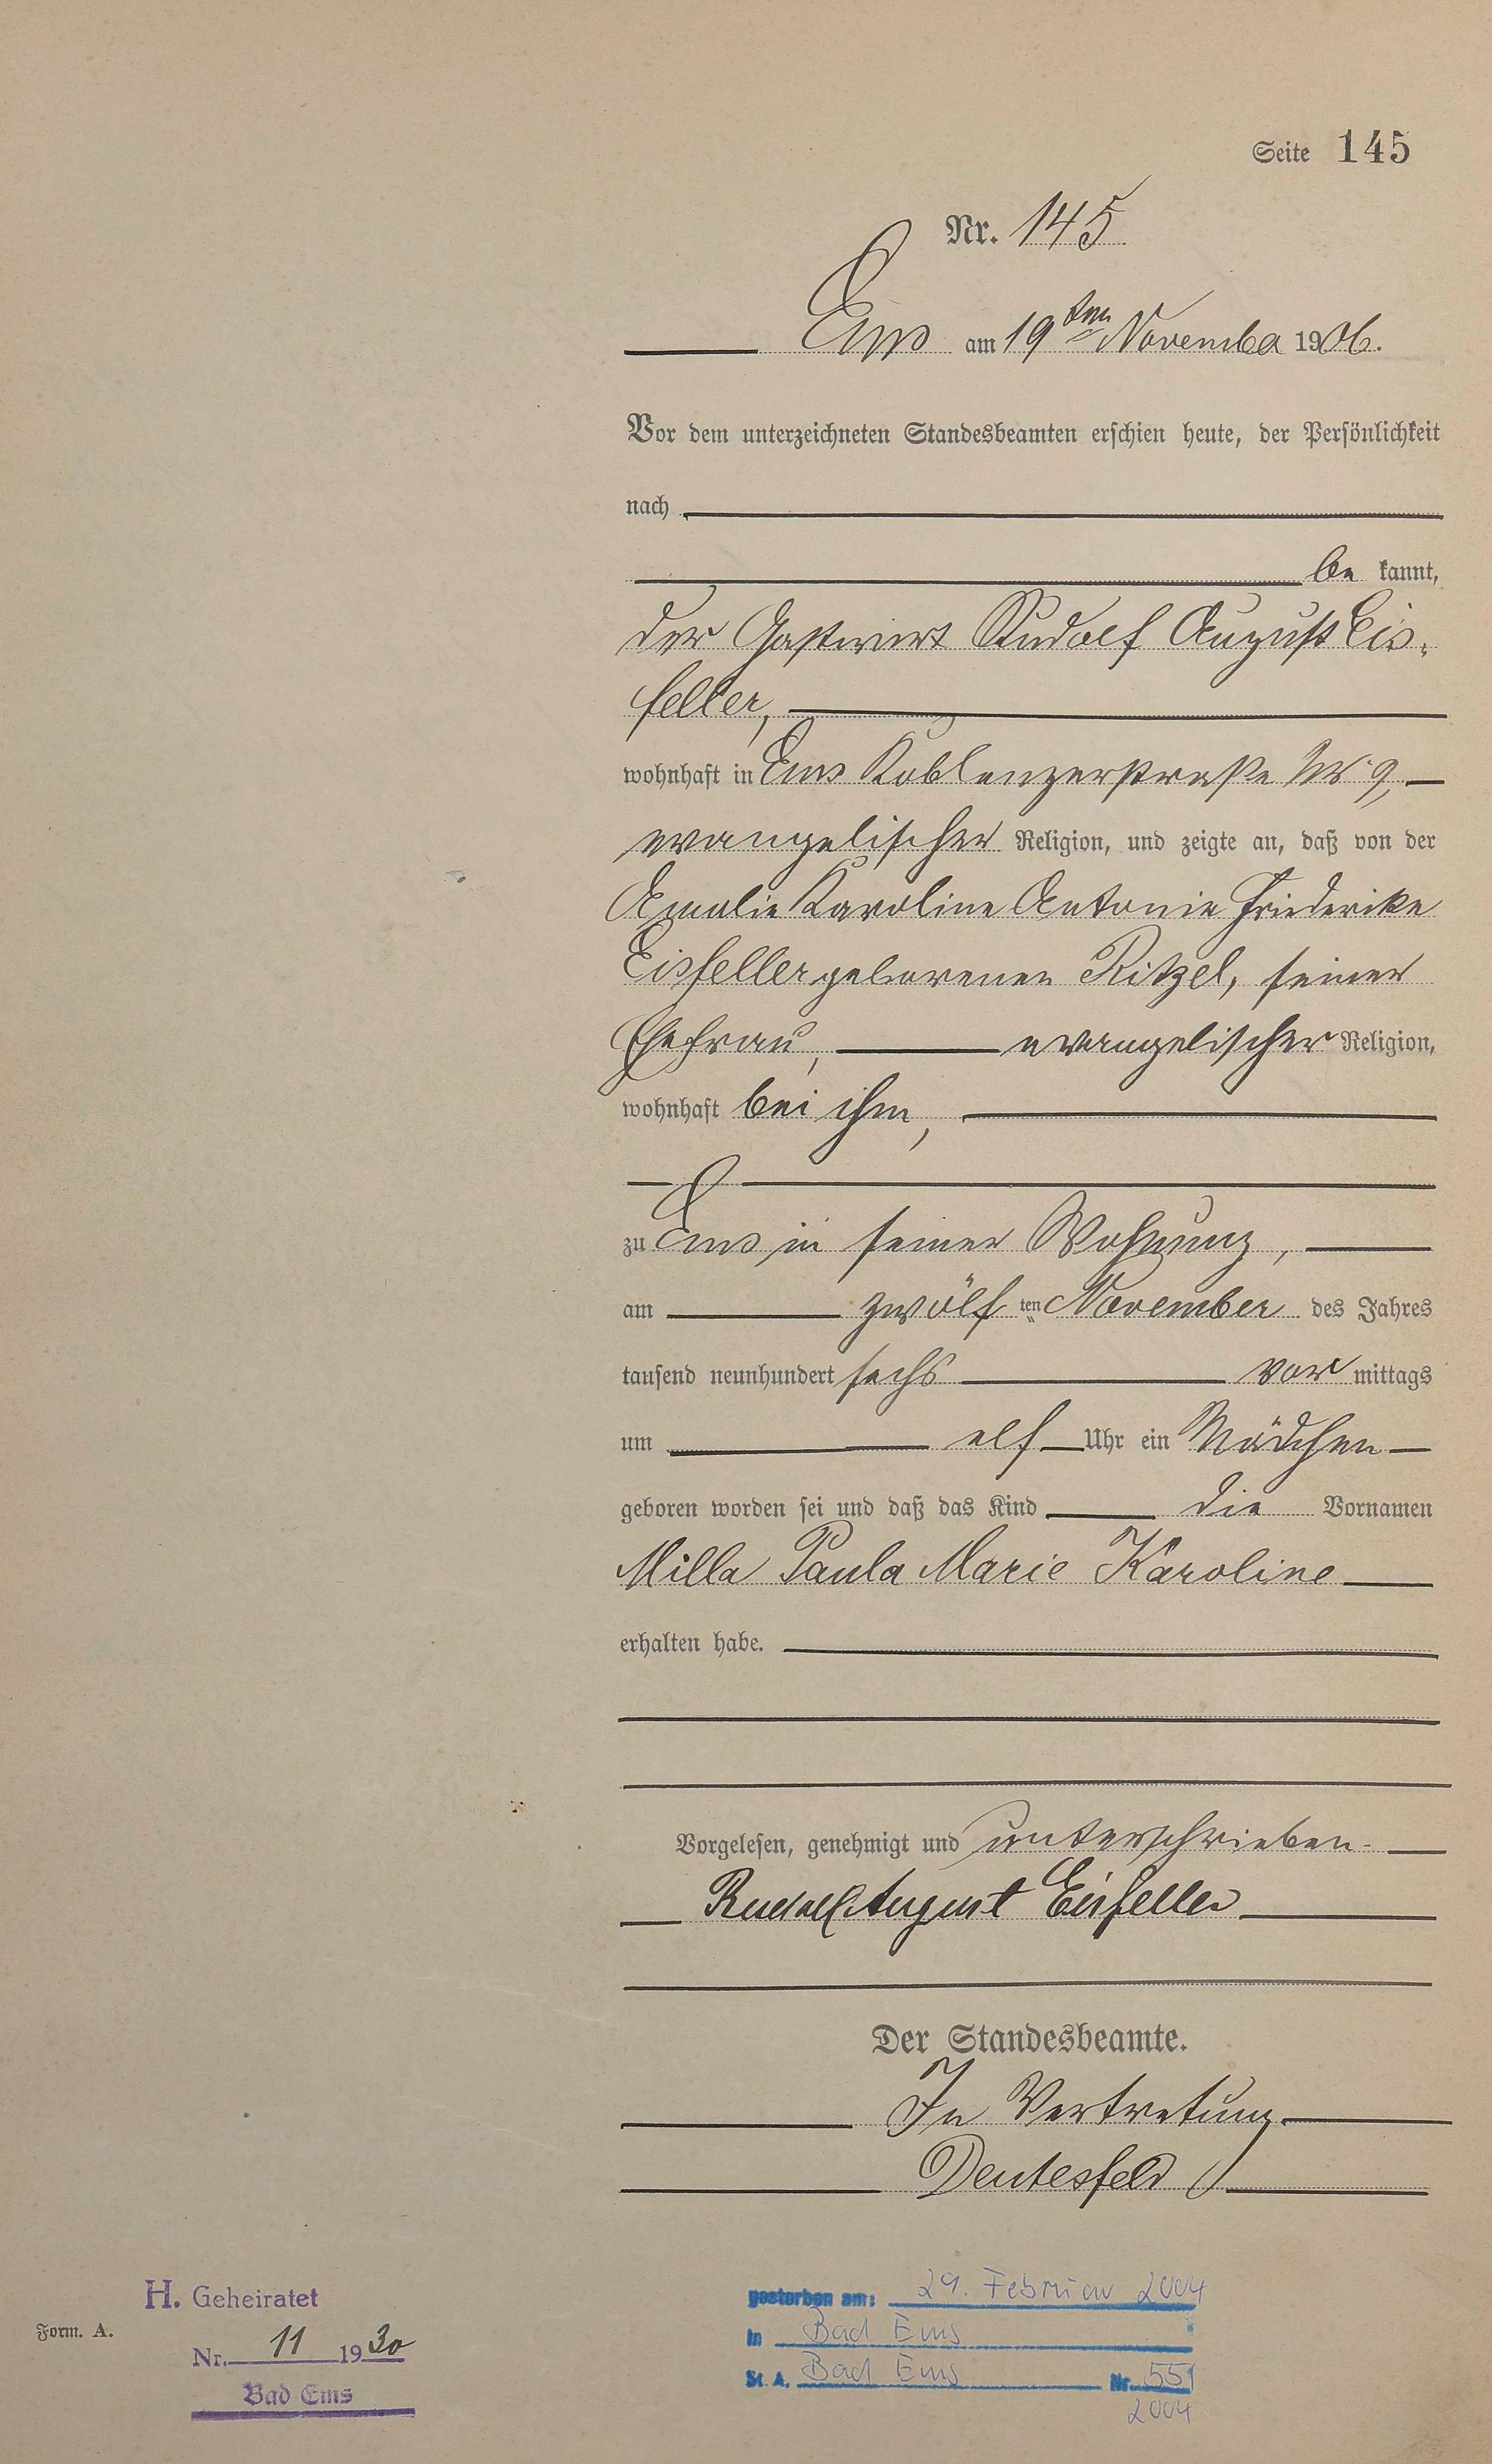 Seite 145
Nr. 145
Ems am 19ten November 1906.
Vor dem unterzeichneten Standesbeamten erschien heute, der Persönlichkeit
nach
be kannt,
der Gastwirt Rudolf August Eis-
feller,
wohnhaft in Ems Koblenzerstraße No 9,
evangelischer Religion, und zeigte an, daß von der
Amalie Karoline Antonie Friederike
Eisfeller geborenen Ritzel, seiner
Ehefrau, evangelischer Religion,
wohnhaft bei ihm,
zu Ems in seiner Wohnung,
am zwölf ten November des Jahres
tausend neunhundert sechs vor mittags
um elf Uhr ein Mädchen
geboren worden sei und daß das Kind die Vornamen
Milla Paula Marie Karoline
erhalten habe.
Vorgelesen, genehmigt und unterschrieben.
Rudolf August Eisfeller
Der Standesbeamte.
In Vertretung.
Deutesfeld
H. Geheiratet
Form. A.
Nr. 11 1930
Bad Ems
gestorben am: 29. Februar 2004
in Bad Ems
St. A. Bad Ems Nr. 55/
2004